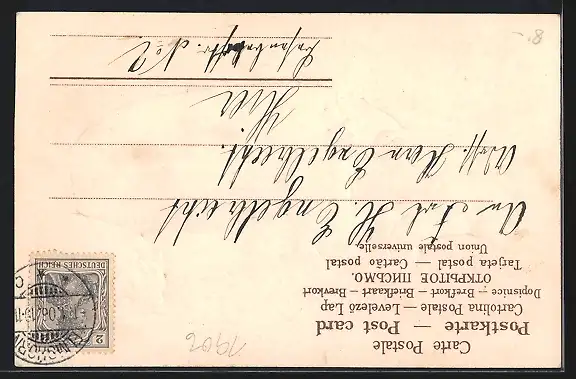 Carte Postale
Postkarte — Post card
Cartolina Postale — Levelező Lap
Dopisnice — Brefkort — Briefkaart — Brevkort
ОТКРЫТОЕ ПИСЬМО.
Tarjeta postal — Cartão postal
Union postale universelle.
An Frl H. Engelbrecht
Adr. Herrn Engelbrecht.
Hier
No 2
DEUTSCHES REICH
2
1902
8